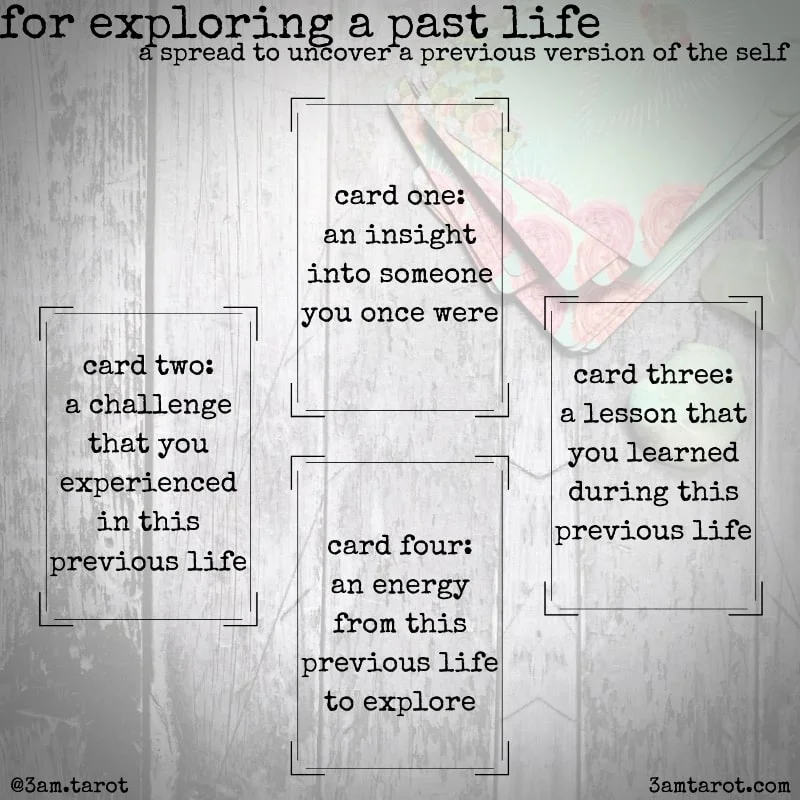 for exploring a past life
a spread to uncover a previous version of the self
card one:
an insight
into someone
you once were
card two:
a challenge
that you
experienced
in this
previous life
card three:
a lesson that
you learned
during this
previous life
card four:
an energy
from this
previous life
to explore
@3am.tarot
3amtarot.com